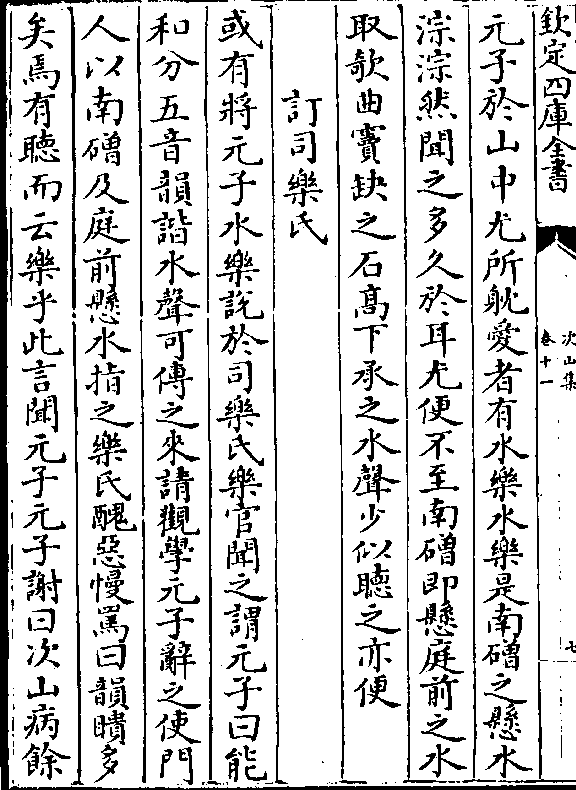 欽定四庫全書
次山集
卷十一
七
元子於山中尤所躭愛者有水樂水樂是南磳之懸水
淙淙然聞之多久於耳尤便不至南磳即懸庭前之水
取欹曲竇缺之石髙下承之水聲少似聴之亦便
訂司樂氏
或有將元子水樂説於司樂氏樂官聞之謂元子曰能
和分五音韻諧水聲可傳之來請觀學元子辭之使門
人以南磳及庭前懸水指之樂氏醜惡慢罵曰韻聵多
矣焉有聴而云樂乎此言聞元子元子謝曰次山病餘